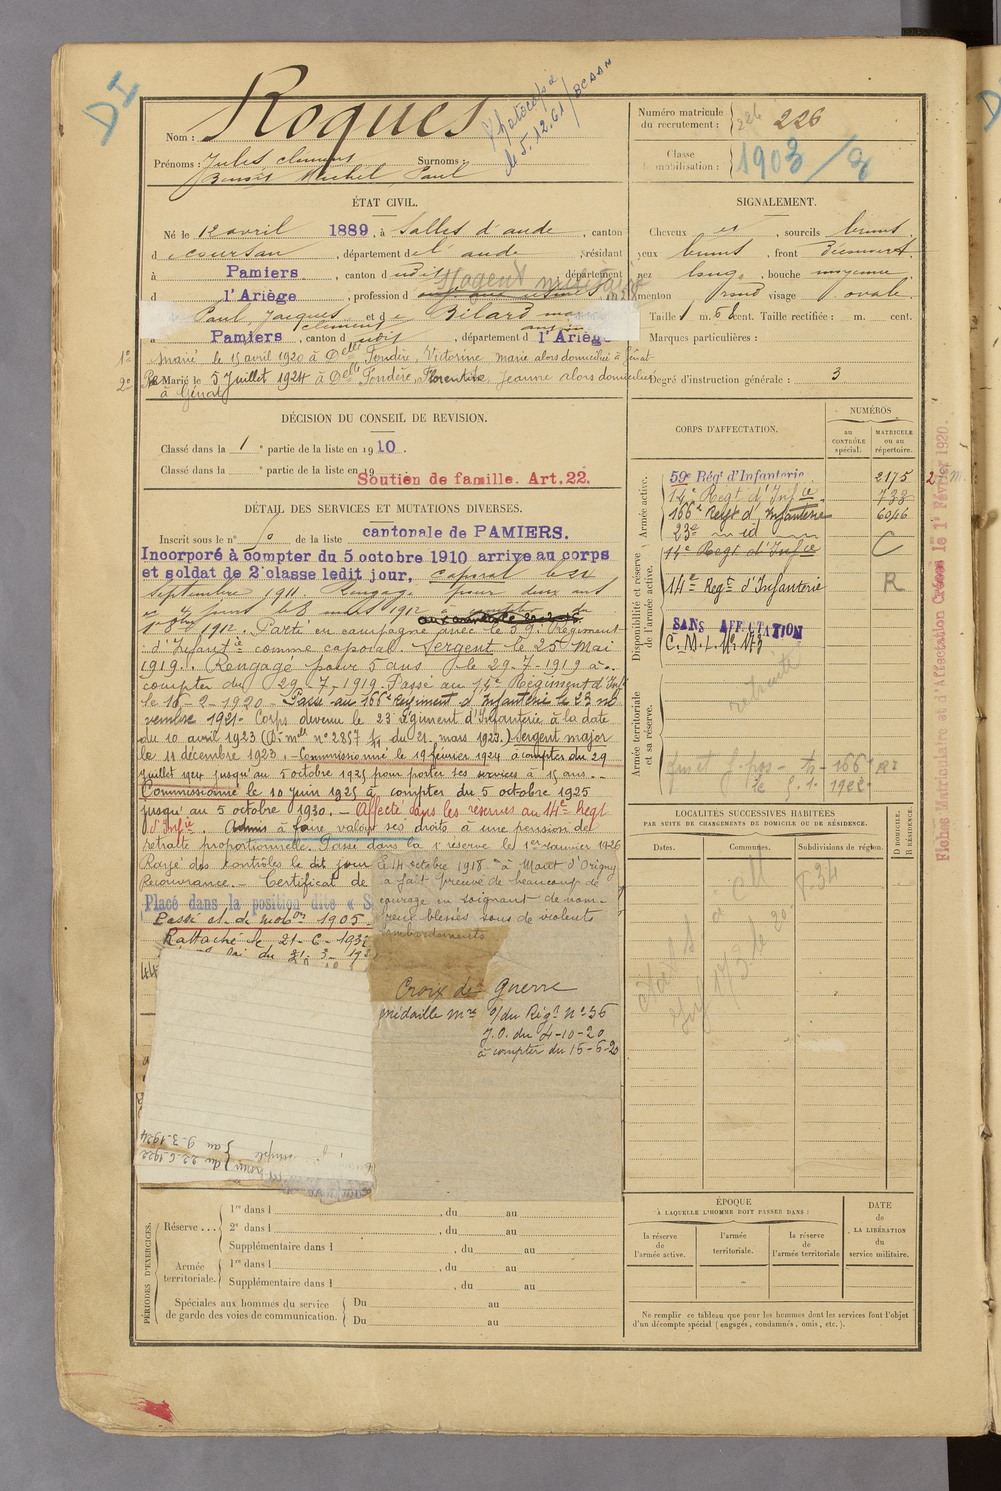 DI
Photocopié
le 5.12.61 / BCAAM
Nom : Roques
Prénoms : Jules, clément Surnoms :
Benoît Michel, Paul
Numéro matricule
du recrutement : 226 226
Classe
de mobilisation : 1903
ÉTAT CIVIL.
Né le 12 avril 1889, à Salles d'aude, canton
d coursan, département de l'aude, résidant
à Pamiers, canton d udit, département
d l'Ariège, profession d
Paul, Jacques et d e Bilard
clément
à Pamiers, canton d udit, département d l'Ariège
1° Marié le 15 avril 1920 à Delle Fondère, Victorine, Marie alors domiciliée à Génat
2° Re Marié le 5 Juillet 1924 à Delle Fondère, Florentine, Jeanne alors domiciliée
à Génat
SIGNALEMENT.
Cheveux et, sourcils bruns.
yeux bruns, front Découvert.
nez long, bouche moyenne
menton rond visage ovale.
Taille 1 m. 68 cent. Taille rectifiée : m. cent.
Marques particulières :
Degré d'instruction générale : 3
DÉCISION DU CONSEIL DE REVISION.
Classé dans la 1e partie de la liste en 1910.
Classé dans la e partie de la liste en 19
Soutien de famille. Art. 22.
DÉTAIL DES SERVICES ET MUTATIONS DIVERSES.
Inscrit sous le n° de la liste cantonale de PAMIERS.
Incorporé à compter du 5 octobre 1910 arrivé au corps
et soldat de 2e classe ledit jour, caporal le 24
septembre 1911. Rengagé pour deux ans
le 8 mars 1912 à compter du
1912. Parti en campagne avec le 59e Régiment
d'Infantie comme caporal. Sergent le 25 Mai
1919. Rengagé pour 5 ans le 29-7-1919 à
compter du 29-7-1919. Passé au 14e Régiment d'Inf
le 16-2-1920. Passé au 166e régiment d'Infanterie le 23 no
vembre 1921. Corps devenu le 23e régiment d'Infanterie à la date
du 10 avril 1923 (D. mlle n° 2857 1/1 du 21 mars 1923.) Sergent major
le 11 décembre 1923. Commissionné le 19 février 1924 à compter du 29
Juillet 1924 jusqu'au 5 octobre 1925 pour porter ses services à 15 ans.
Commissionné le 10 juin 1925 à compter du 5 octobre 1925
jusqu'au 5 octobre 1930. — Affecté dans les réserves au 14e Regt
d'Infie. Admis à faire valoir ses droits à une pension de
retraite proportionnelle. Passé dans la 1e réserve le 1er Janvier 1926
Rayé des contrôles le dit jour
Recouvrance. — Certificat de
Placé dans la position dite « S
Passé cl. de mobon 1905.
Rattaché le 21-6-193
loi du 21-3-19
le 14 octobre 1918 à Mont d'Origny
a fait preuve de beaucoup de
courage en soignant de nom-
breux blessés sous de violents
bombardements
Croix de Guerre
Médaille mre o/du Régt n° 56
J.O. du 4-10-20
à compter du 15-6-20
du 22-6-1922
au 9-3-1924
CORPS D'AFFECTATION.
NUMÉROS
au
CONTRÔLE
spécial.
MATRICULE
ou au
répertoire.
Armée active.
59e Régt d'Infanterie 2175
14e Regt d'Infie 738
166e Regt d'Infanterie 6046
23e id
Disponibilité et réserve
de l'armée active.
14e Regt d'Infie C
14e Regt d'Infanterie R
SANS AFFECTATION
C.M.I. Nr. 173
Armée territoriale
et sa réserve.
retraité
166e RI
1922
Fiches Matriculaire et d'Affectation Créées le 1er Février 1920.
LOCALITÉS SUCCESSIVES HABITÉES
PAR SUITE DE CHANGEMENTS DE DOMICILE OU DE RÉSIDENCE.
Dates. Communes. Subdivisions de région. D DOMICILE. R RÉSIDENCE.
PÉRIODES D'EXERCICES.
Réserve ... 1re dans l , du au
2e dans l , du au
Supplémentaire dans l , du au
Armée
territoriale. 1re dans l , du au
Supplémentaire dans l , du au
Spéciales aux hommes du service
de garde des voies de communication. Du au
Du au
ÉPOQUE
À LAQUELLE L'HOMME DOIT PASSER DANS :
la réserve
de
l'armée active.
l'armée
territoriale.
la réserve
de
l'armée territoriale
DATE
de
LA LIBÉRATION
du
service militaire.
Ne remplir ce tableau que pour les hommes dont les services font l'objet
d'un décompte spécial (engagés, condamnés, omis, etc.).